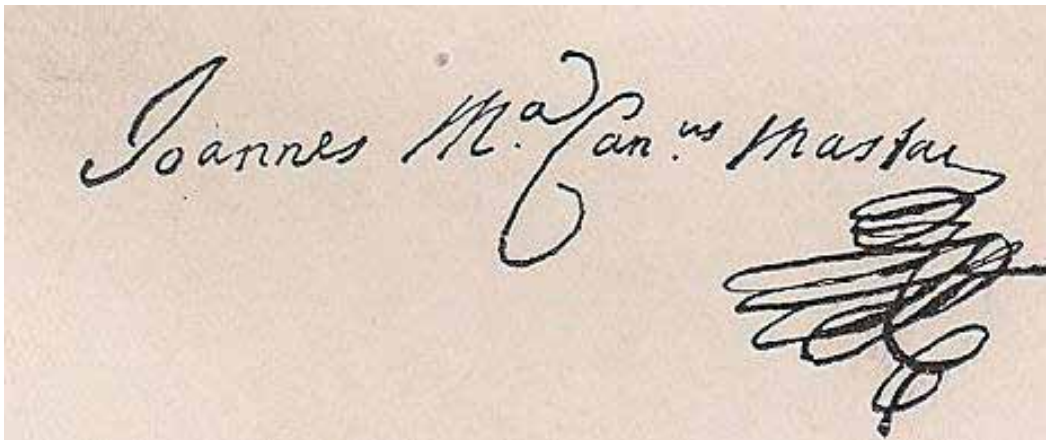 Joannes M.ª Can.us Mastai